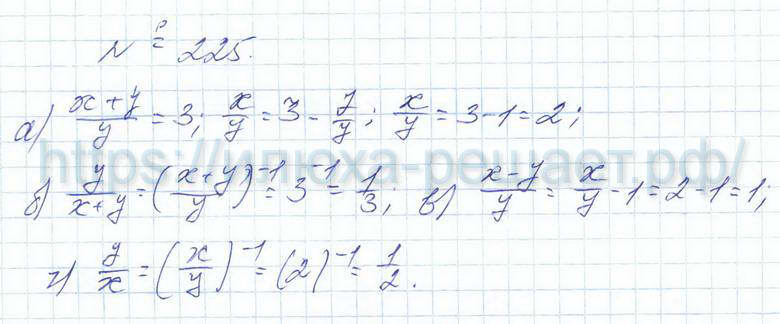 № 225.
а) \frac{x+y}{y} = 3; \frac{x}{y} = 3 - \frac{y}{y}; \frac{x}{y} = 3-1=2;
https://илюха-решает.рф/
б) \frac{y}{x+y} = (\frac{x+y}{y})^{-1} = 3^{-1} = \frac{1}{3}; в) \frac{x-y}{y} = \frac{x}{y} - 1 = 2-1=1;
г) \frac{y}{x} = (\frac{x}{y})^{-1} = (2)^{-1} = \frac{1}{2}.